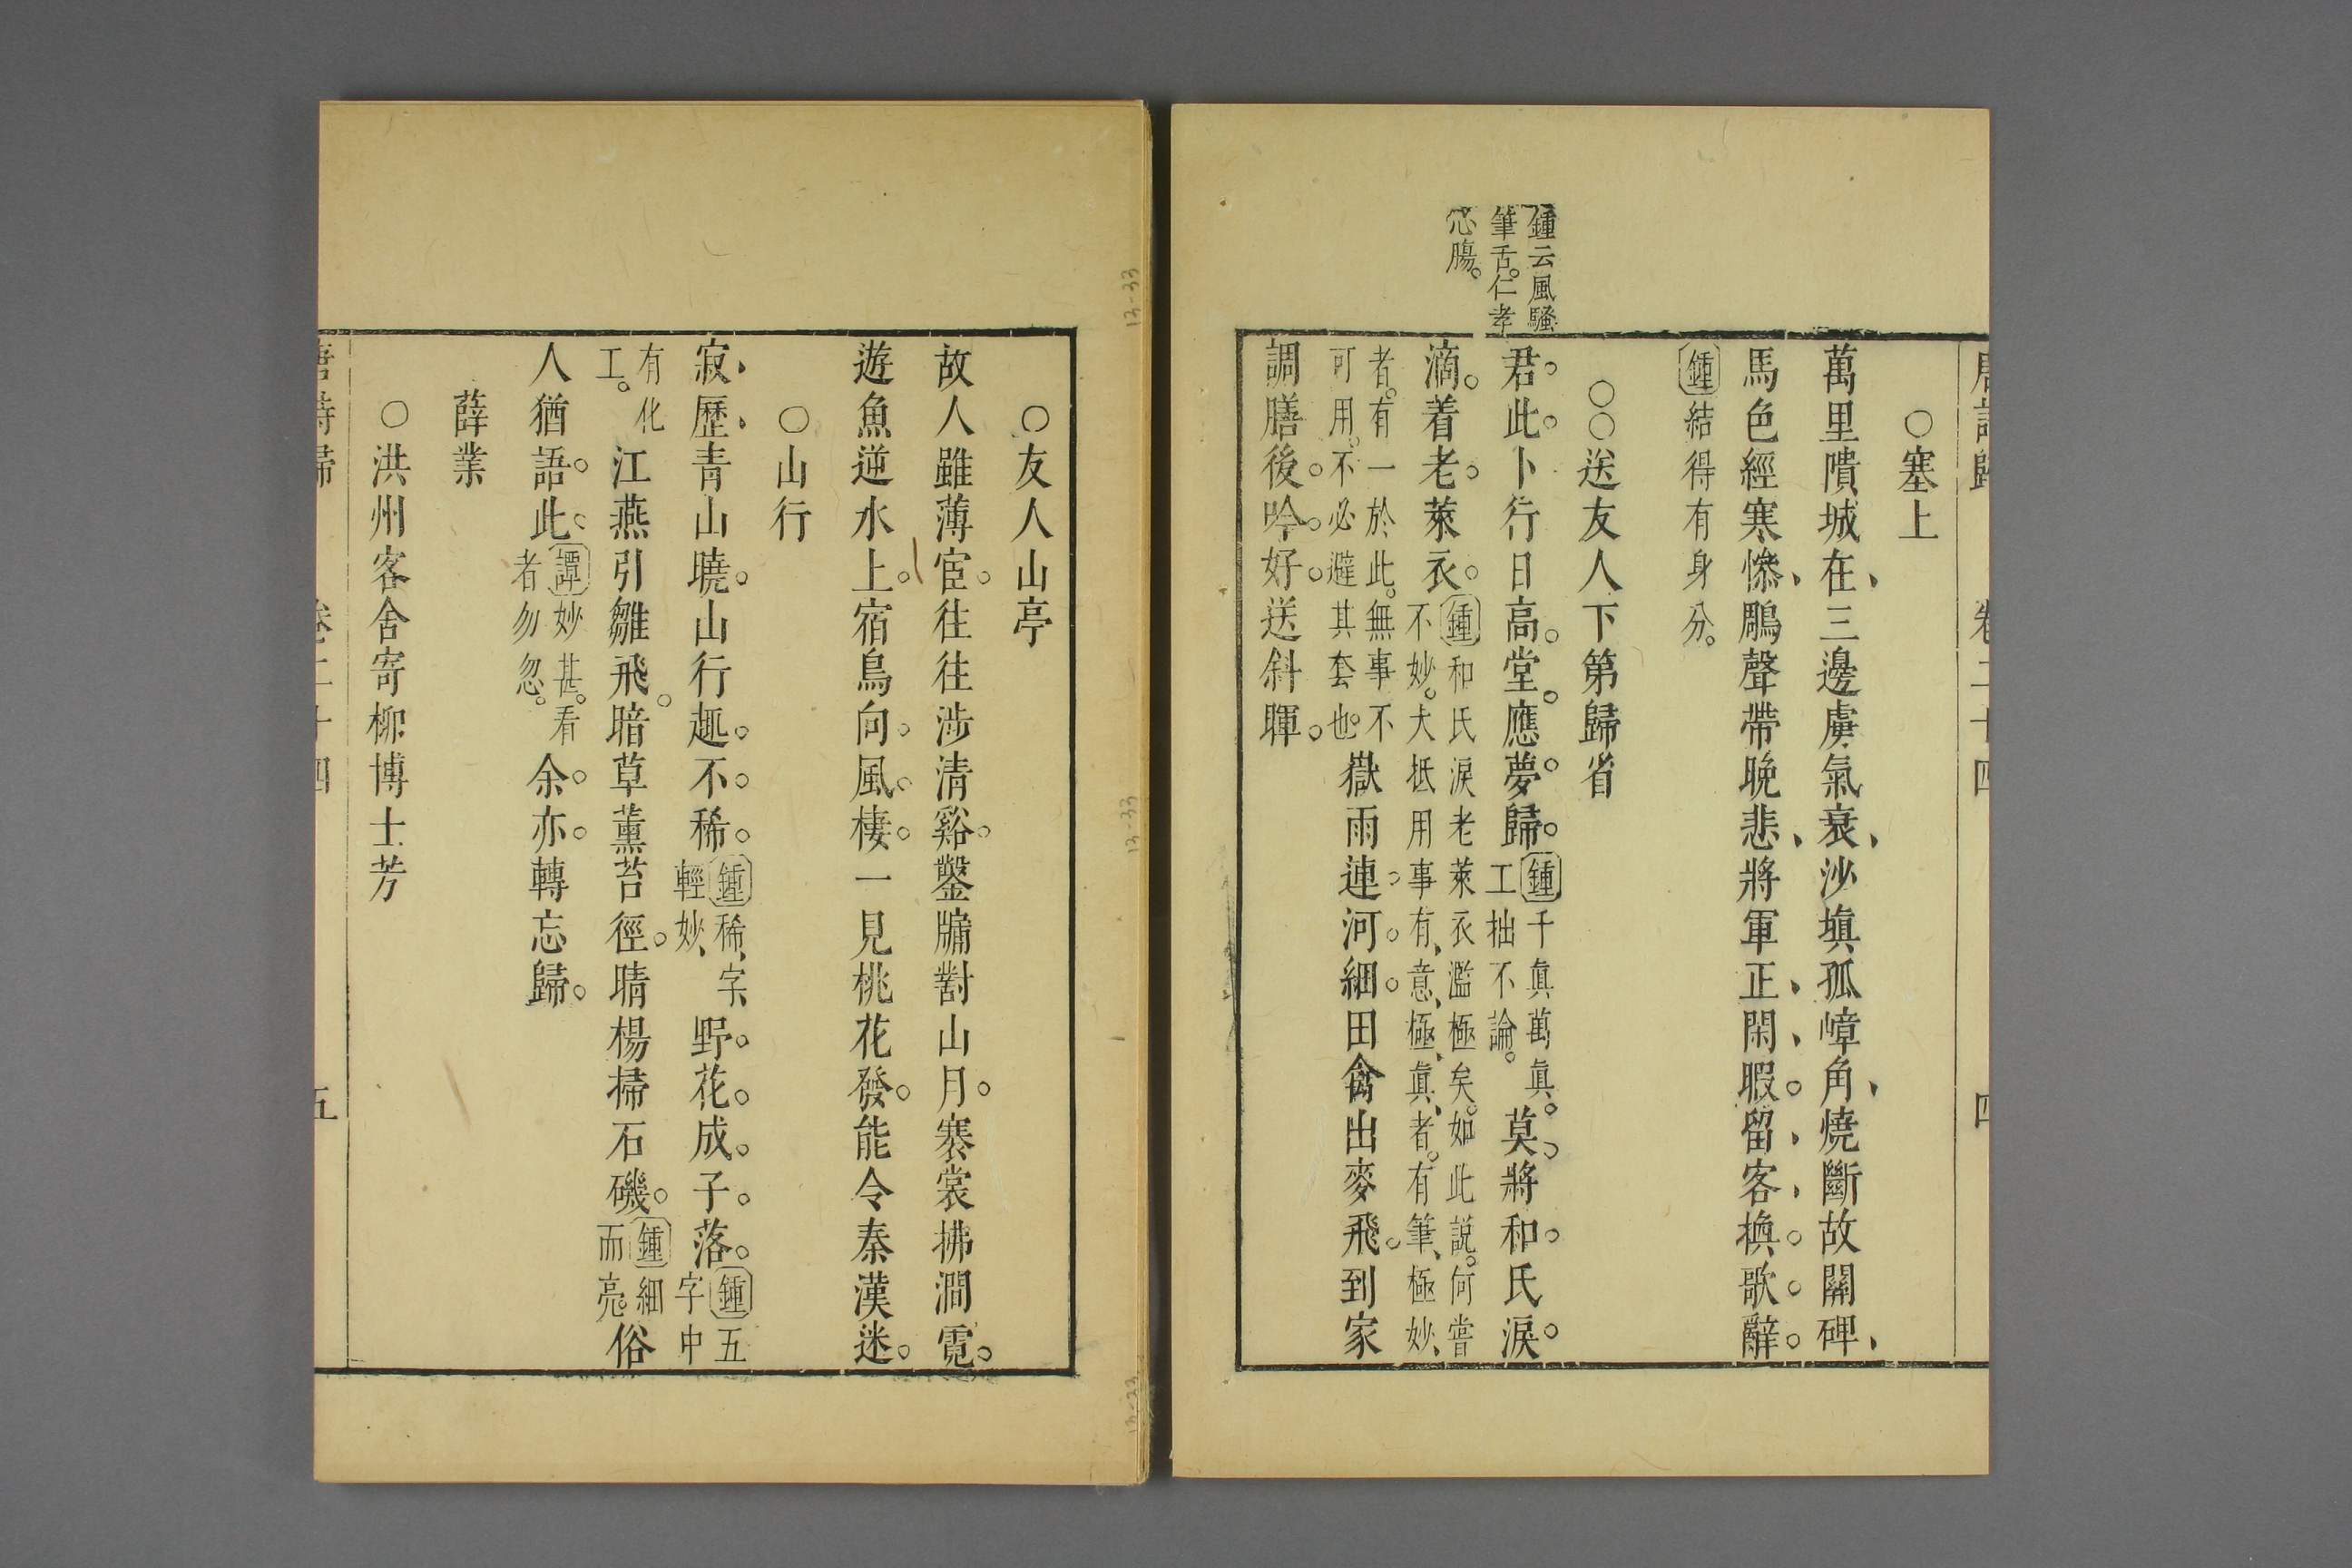 唐詩歸 卷二十四 四
○塞上
萬里隤城在、三邊虜氣衰、沙塡孤嶂角、燒斷故關碑、
馬色經寒慘、鵰聲帶晚悲、將軍正、閑、暇。留、客、換。歌。辭。
鍾結得有身分。
○○送友人下第歸省
鍾云風騷
筆舌。仁孝
心腸。
君。此。卜行日高。堂。應夢。歸。鍾千眞萬眞。工拙不論。莫、將和。氏淚。
滴。着老。萊衣。鍾和氏淚老萊衣濫極矣。如此說。何嘗
不妙。大抵用事有、意、極、眞、者。有筆、極妙、
者。有一於此。無事不
可用。不必避其套也。嶽雨連。河。細。田禽出麥飛。到家
調膳後。吟。好。送斜暉。
○友人山亭
故人雖薄宦。往往涉清谿。鑿牖對山月。褰裳拂澗霓。
遊魚逆水上。宿鳥向。風。棲。一見桃花發。能令秦漢迷。
○山行
寂、歷、青山曉。山行趣。不。稀。鍾稀、字、輕妙、野。花。成。子。落。鍾五字中
有化
工。江燕引雛飛。暗草薰苔徑。晴楊掃石磯。鍾細而亮。俗
人猶語。此。譚妙甚。看者勿忽。余。亦。轉忘歸。
薛業
○洪州客舍寄柳博士芳
唐詩歸 卷二十四 五
13-33
13-33
13-33